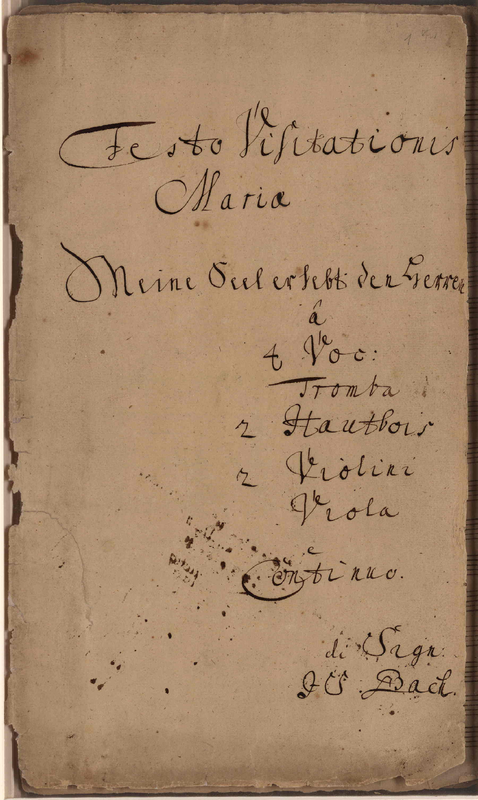 Festo Visitationis
Mariæ
Meine Seel erhebt den Herren
â
4 Voc:
Tromba
2 Hautbois
2 Violini
Viola
e
Continuo.
di Sign:
JS. Bach.